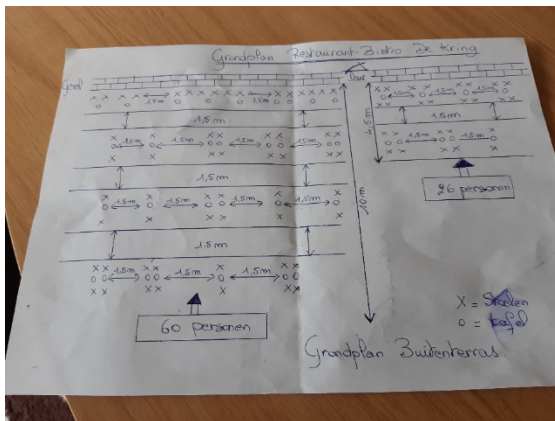 Grondplan Restaurant-Bistro De Kring
Gevel
Deur
1,5m 1,5m 1,5m 1,5m
1,5m
1,5m 1,5m 1,5m 1,5m
1,5m
1,5m 1,5m 1,5m 1,5m
1,5m
1,5m 1,5m 1,5m
60 personen
10m
4,5m
1,5m 1,5m 1,5m
1,5m
1,5m 1,5m
26 personen
X = Stoelen
O = tafel
Grondplan Buitenterras